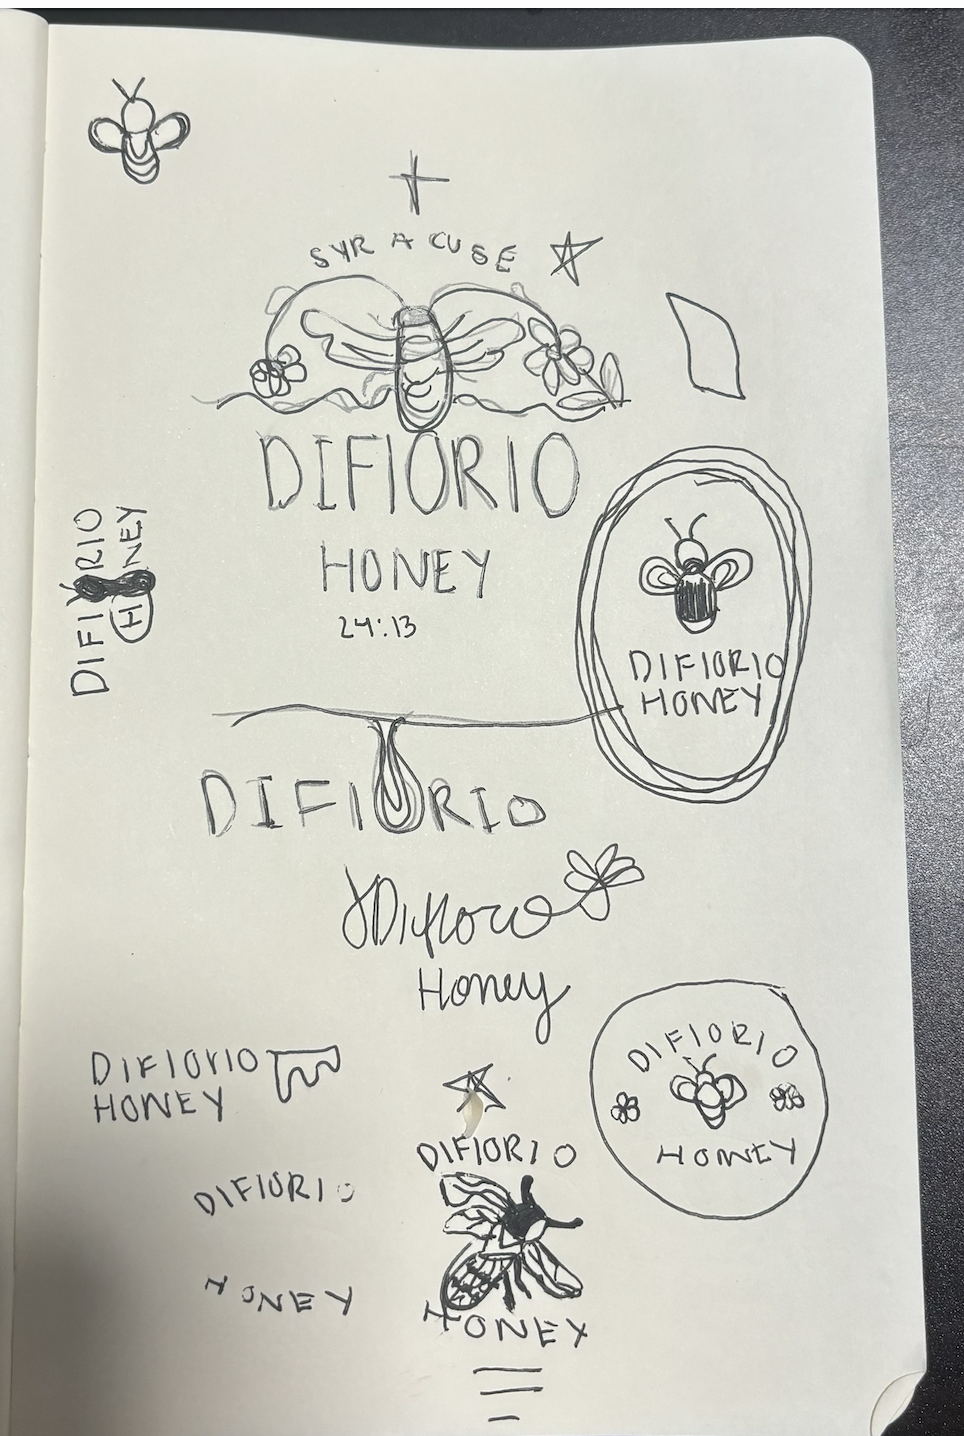 SYRACUSE
DIFIORIO
HONEY
24:13
DIFIORIO
HONEY
DIFIORIO
HONEY
DIFIORIO
Difiorio
Honey
DIFIORIO
HONEY
DIFIORIO
HONEY
DIFIORIO
HONEY
DIFIORIO
HONEY